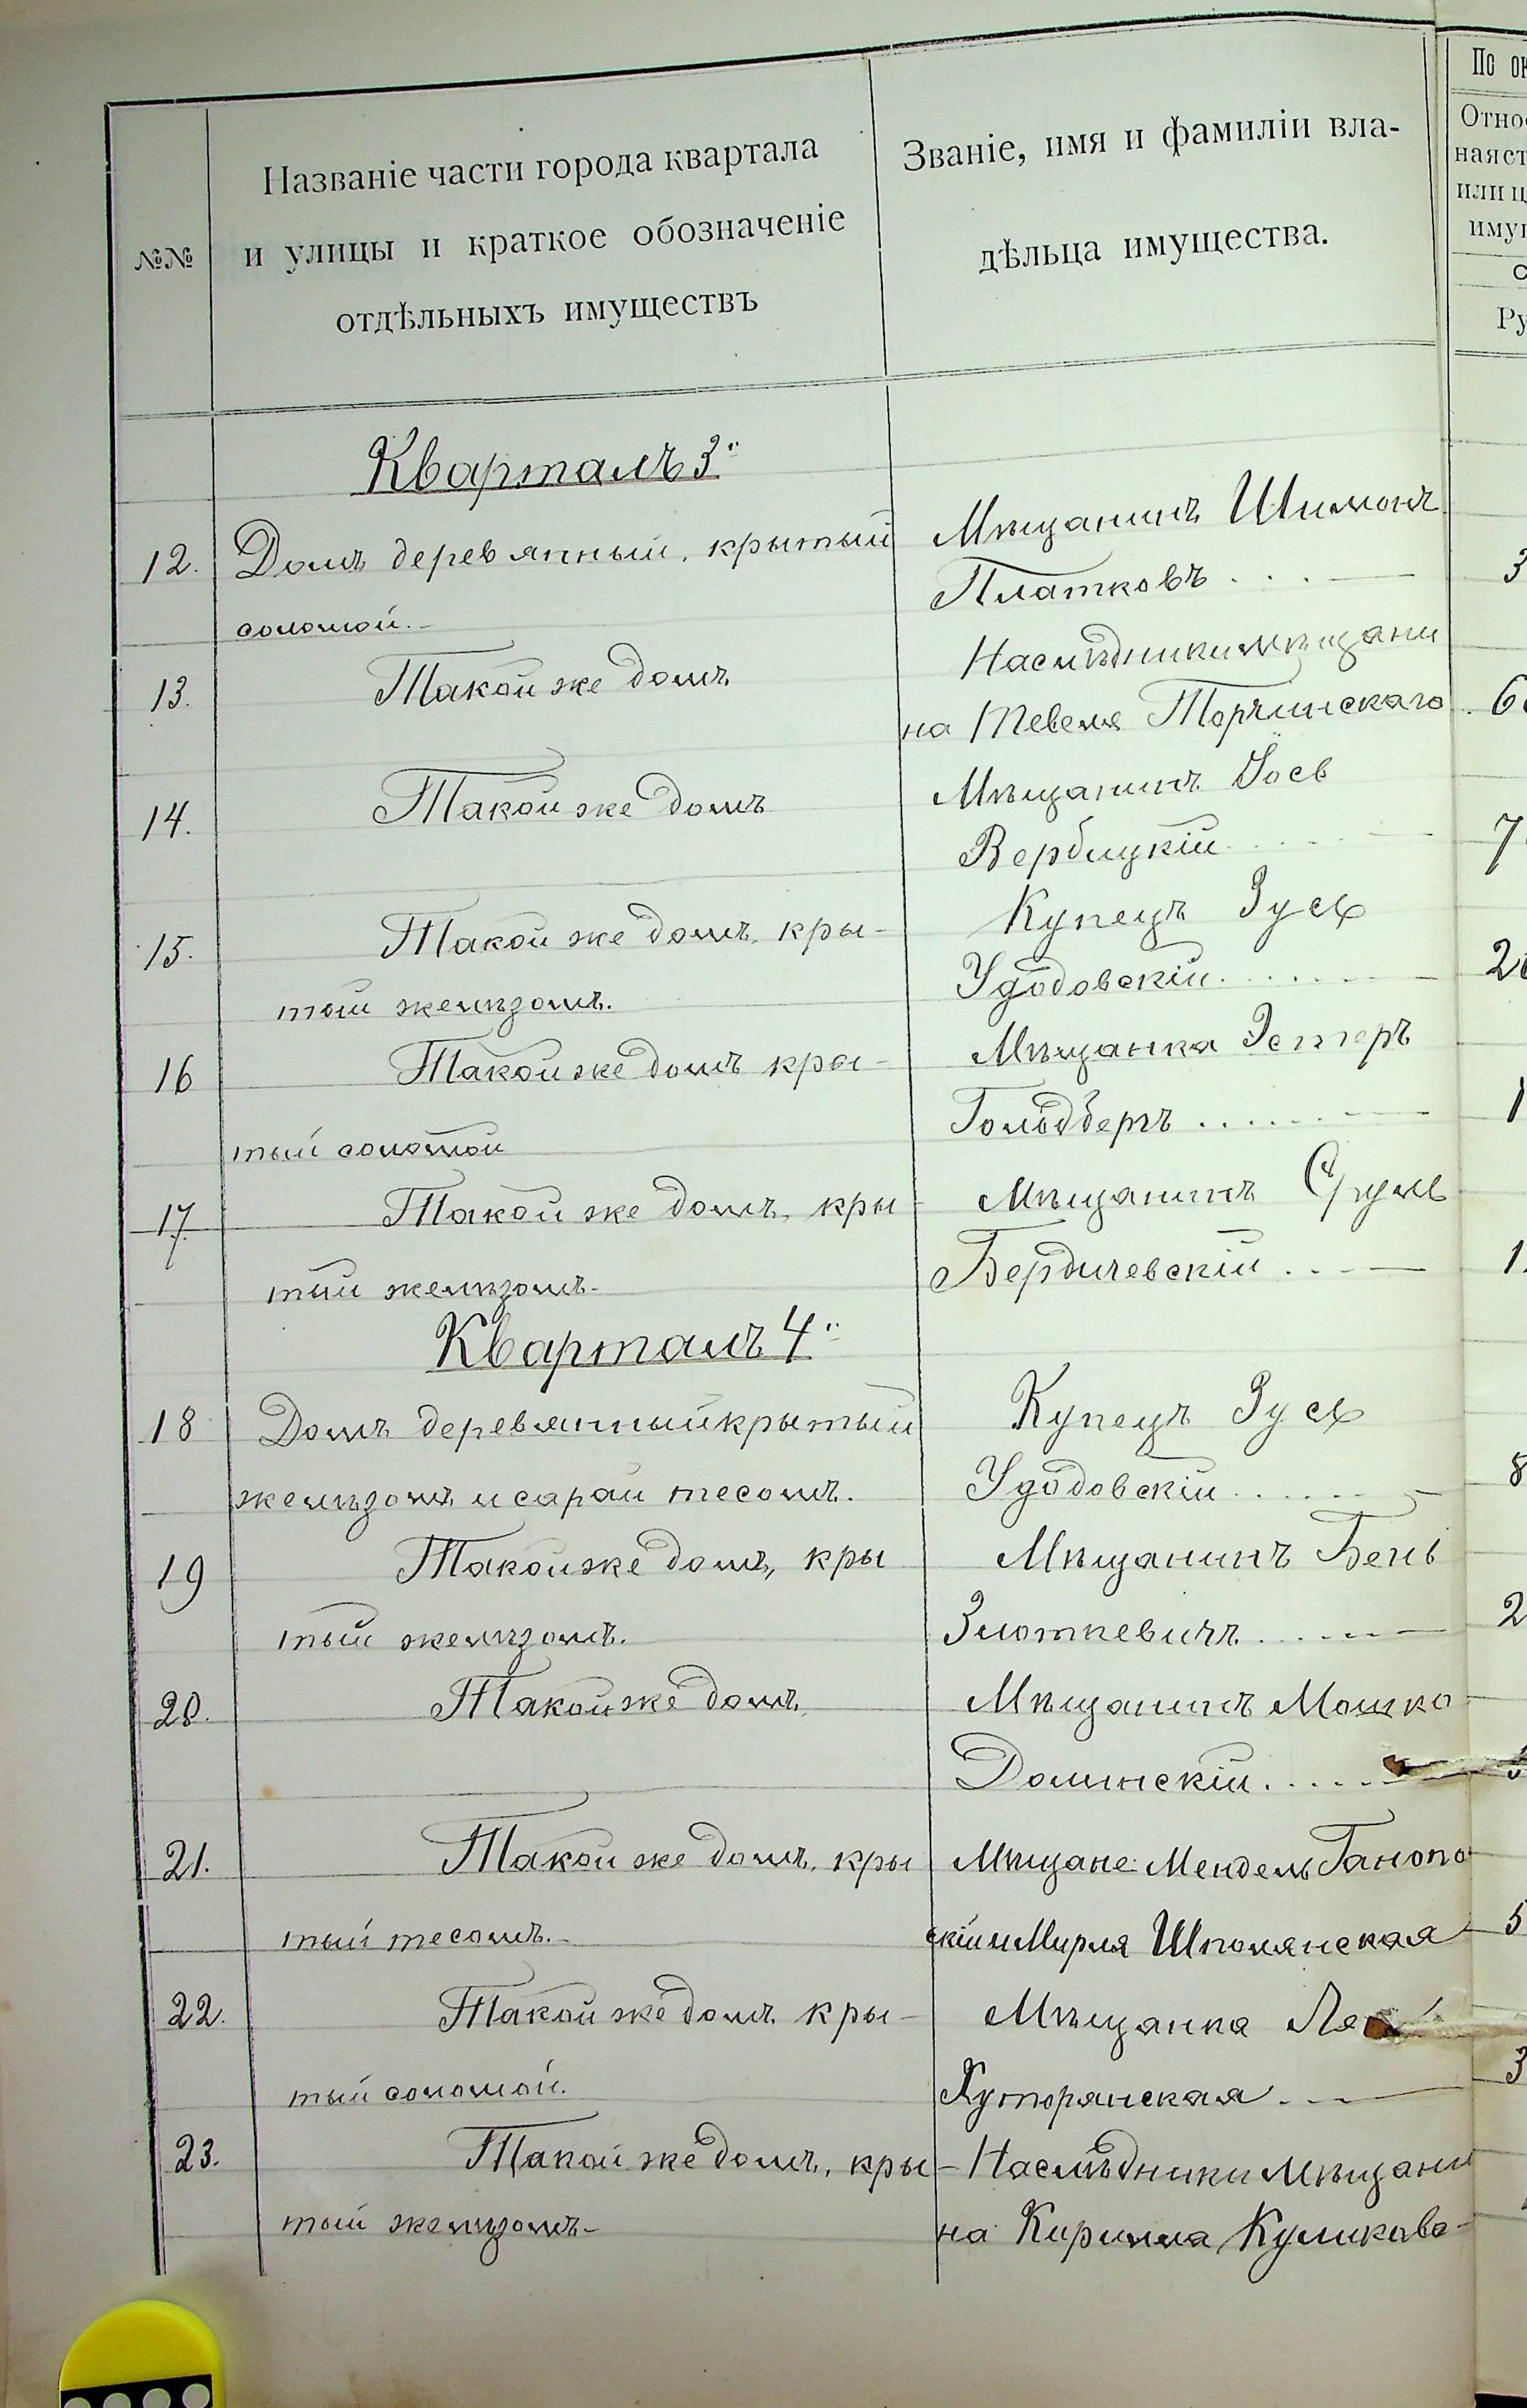 №№
Названіе части города квартала
и улицы и краткое обозначеніе
отдѣльныхъ имуществъ
Званіе, имя и фамиліи вла-
дѣльца имущества.
Кварталъ 3й
12. Домъ деревянный, крытый
соломой.
Мѣщанинъ Шимонъ
Платковъ
13. Такой же домъ
Наслѣдники мѣщани
на Тевеля Торчинскаго
14. Такой же домъ
Мѣщанинъ Іось
Вербицкій
15. Такой же домъ, кры-
тый желѣзомъ.
Купецъ Зусь
Удодовскій
16 Такой же домъ кры-
тый соломой
Мѣщанка Эстеръ
Гольдберъ
17. Такой же домъ, кры
тый желѣзомъ.
Мѣщанинъ Сруль
Бердичевскій
Кварталъ 4й
18 Домъ деревянный крытый
желѣзомъ и сарай тесомъ.
Купецъ Зусь
Удодовскій
19 Такой же домъ, кры
тый желѣзомъ.
Мѣщанинъ Бень
Злоткевичъ
20. Такой же домъ
Мѣщанинъ Мошко
Долинскій
21. Такой же домъ, кры
тый тесомъ.
Мѣщане Мендель Ганопо
скій и Мирля Шполянская
22. Такой же домъ кры-
тый соломой.
Мѣщанка
Хуторянская
23. Такой же домъ, кры-
тый желѣзомъ
Наслѣдники мѣщани
на Кирилла Куликова
По ок
Относ
ная ст
или ц
имущ
С
Ру